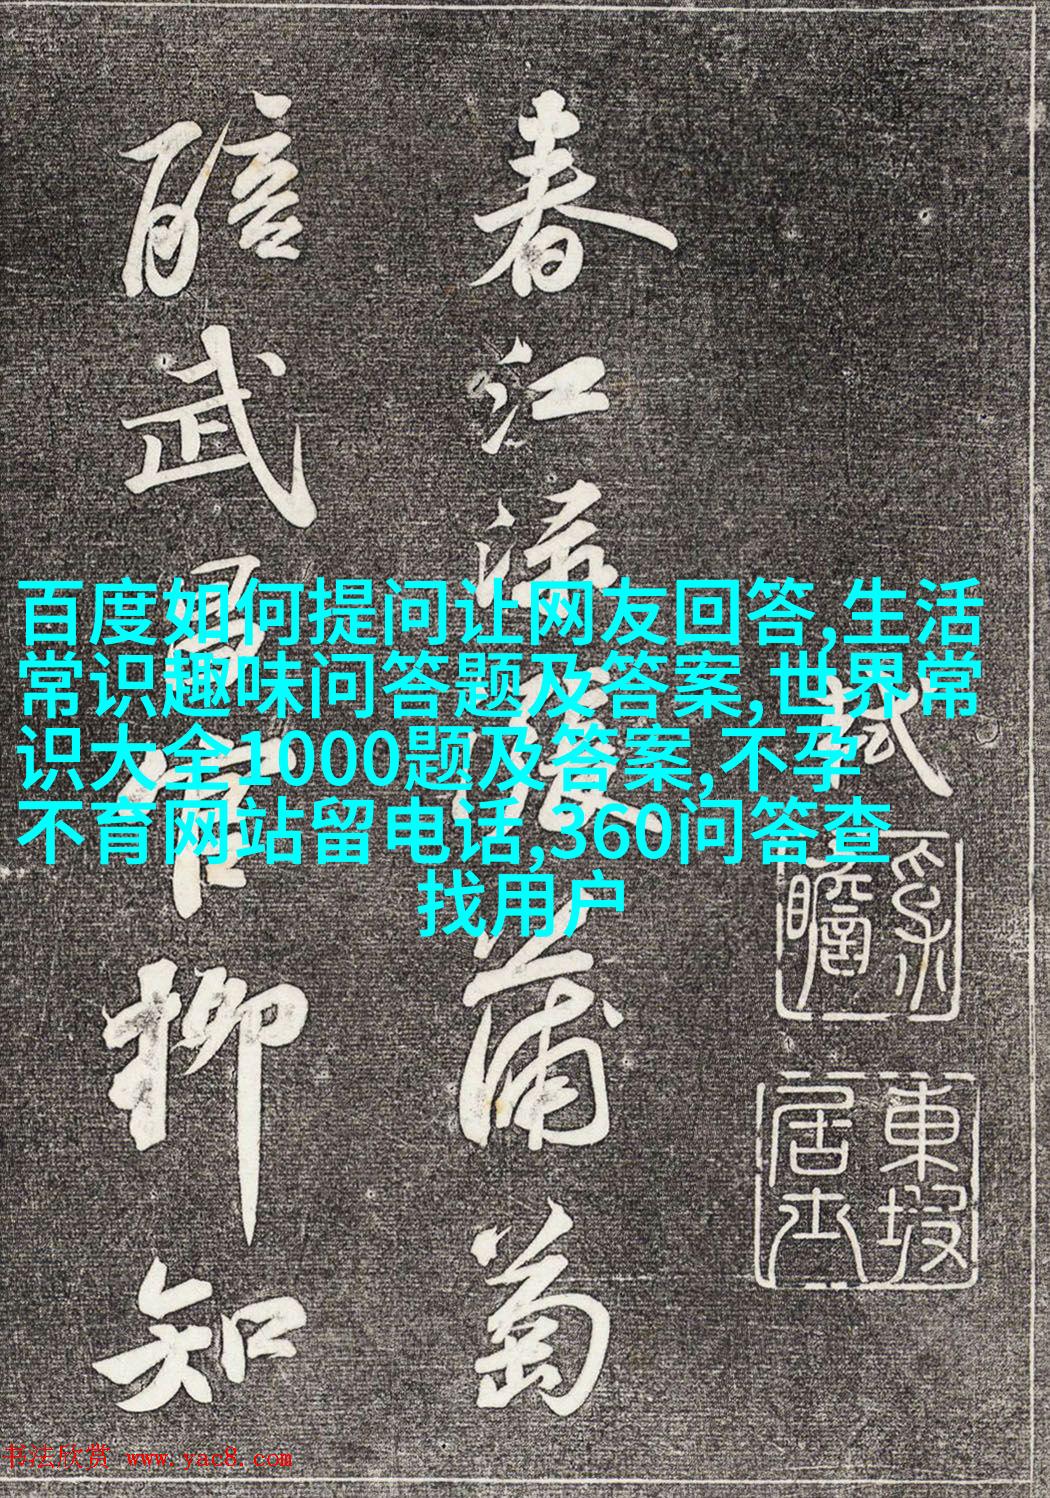 軾
東坡居士
春江渌漲蒲萄
醅武昌官柳知
百度如何提问让网友回答,生活
常识趣味问答题及答案,世界常
识大全1000题及答案,不孕
不育网站留电话,360问答查
找用户
书法欣赏 www.yac8.com